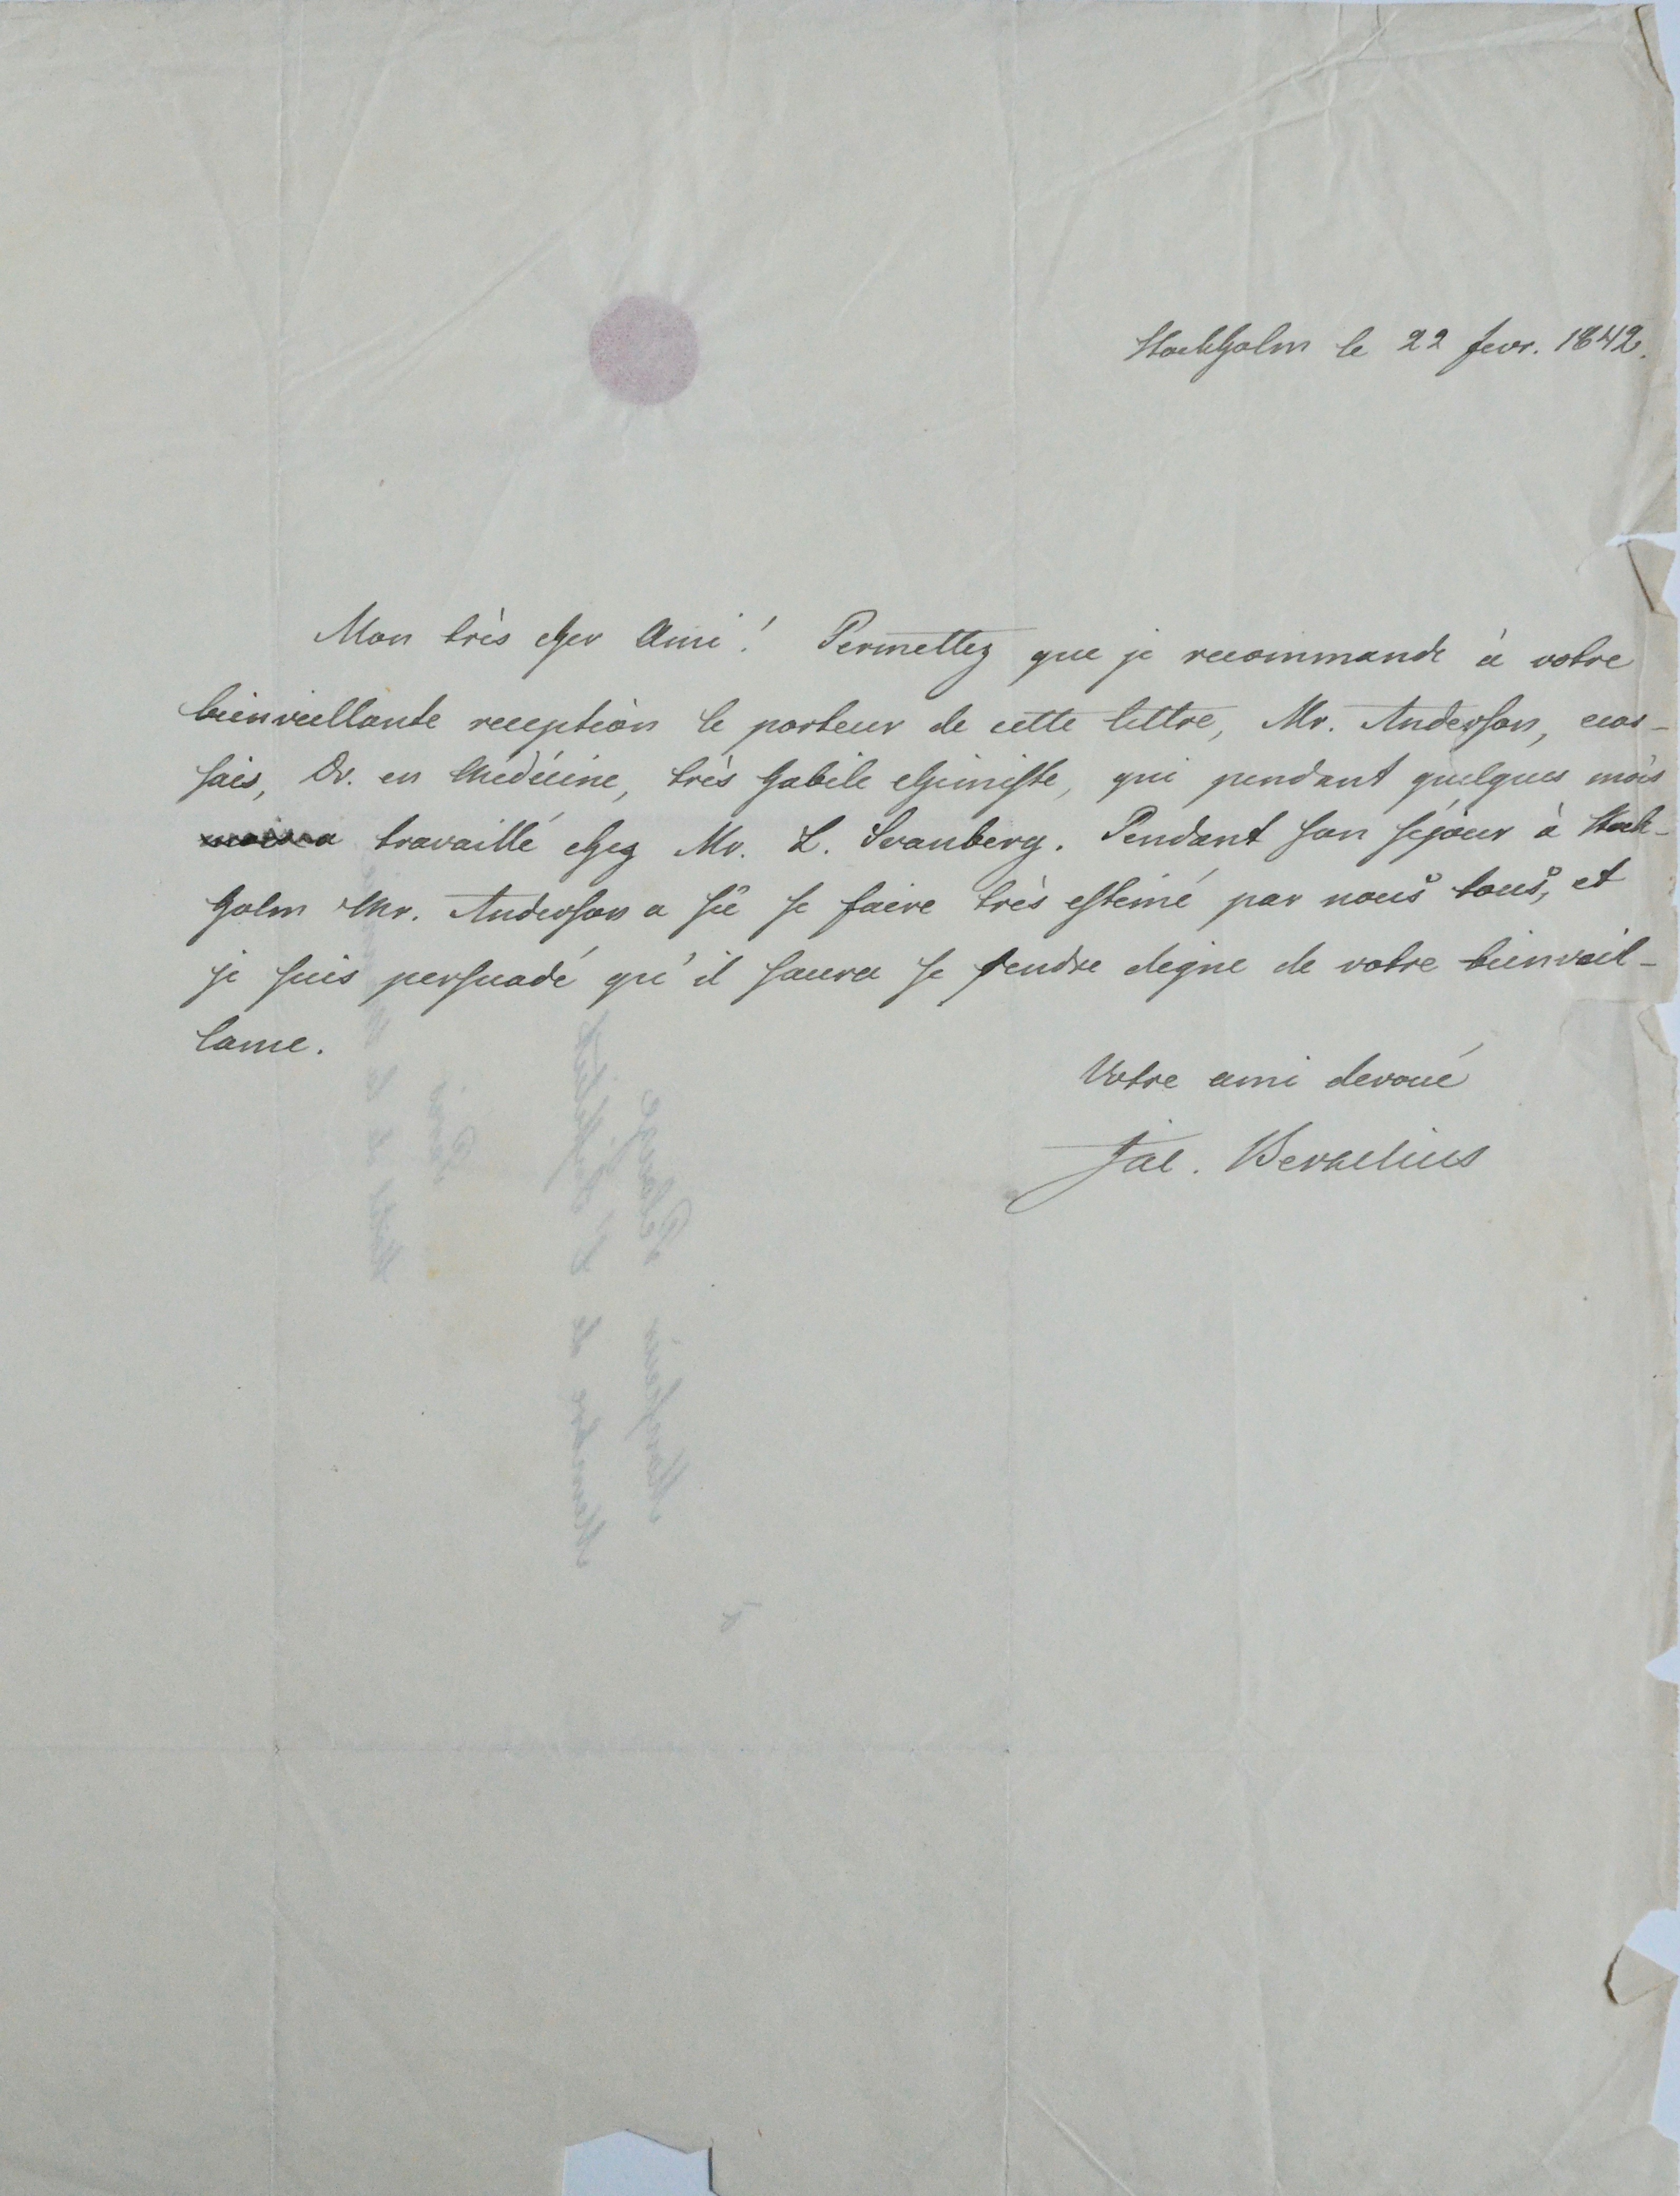 Stockholm le 22 fevr. 1842.
Mon très cher Ami! Permettez que je recommande à votre
bienveillante reception le porteur de cette lettre, Mr. Anderson, ecos-
sais, Dr. en Médécine, très habile chimiste, qui pendant quelques mois
a travaillé chez Mr. L. Svanberg. Pendant son séjour à Stock-
holm Mr. Anderson a sû se faire très estimé par nous tous, et
je suis persuadé qu'il saura se rendre digne de votre bienveil-
lance.
Votre ami devoué
Jac. Berzelius
Monsieur Pelouze
Membre de l'Institut
Paris